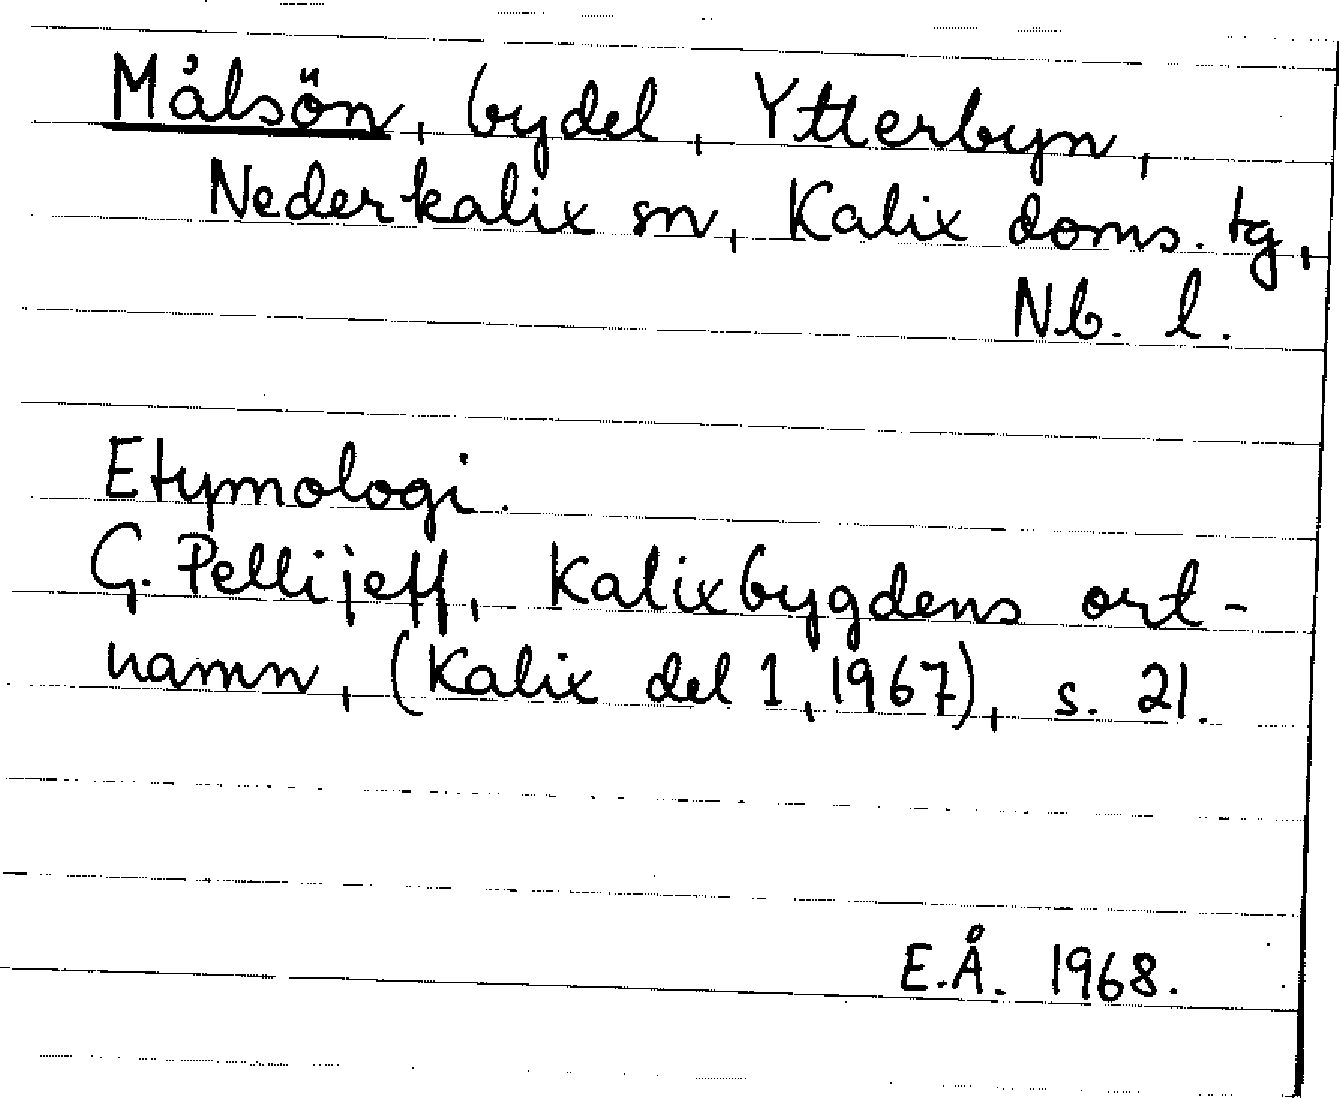 Målsön, bydel, Ytterbyn,
Nederkalix sn, Kalix doms. tg,
Nb. l.
Etymologi.
G. Pellijeff, Kalixbygdens ort-
namn, (Kalix del 1, 1967), s. 21.
E.Å. 1968.